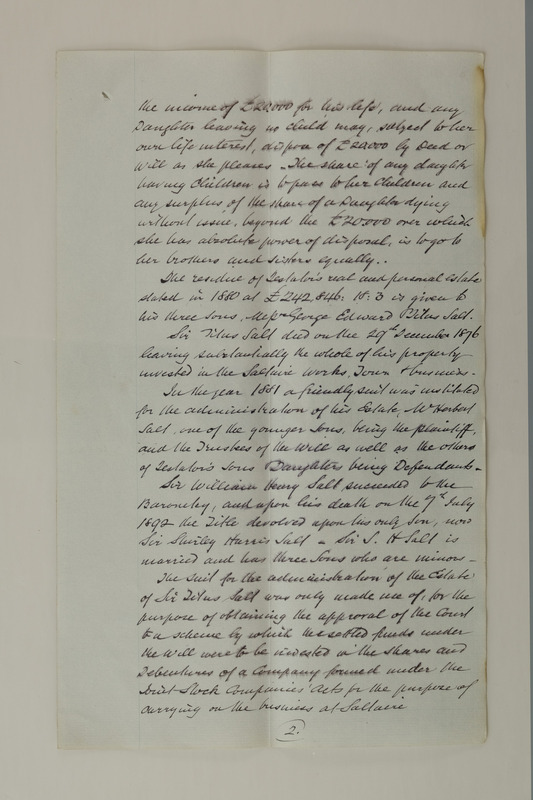 the income of £20,000 for his life, and any
Daughter leaving no child may, subject to her
own life interest, dispose of £20000 by Deed or
Will as she pleases – The share of any daughter
having children is to pass to her children and
any surplus of the share of a Daughter dying
without issue, beyond the £20.000 over which
she has absolute power of disposal, is to go to
her brothers and sisters equally..
The residue of Testator's real and personal Estate
stated in 1880 at £242,846: 18: 3 is given to
his three sons, Messrs George Edward Titus Salt.
Sir Titus Salt died on the 29th December 1876
leaving substantially the whole of his property
invested in the Saltaire Works, Town & business.
In the year 1881 a friendly suit was instituted
for the administration of his Estate, Mr Herbert
Salt, one of the younger sons, being the plaintiff,
and the Trustees of the Will as well as the others
of Testator's Sons Daughters being Defendants –
Sir William Henry Salt succeeded to the
Baronetcy, and upon his death on the 7th July
1892 the Title devolved upon his only Son, now
Sir Shirley Harris Salt – Sir S. H Salt is
married and has three Sons who are minors –
The suit for the administration of the Estate
of Sir Titus Salt was only made use of, for the
purpose of obtaining the approval of the Court
to a scheme by which the settled funds under
the Will were to be invested in the shares and
Debentures of a Company formed under the
Joint Stock Companies' Acts for the purpose of
carrying on the business at Saltaire
2.